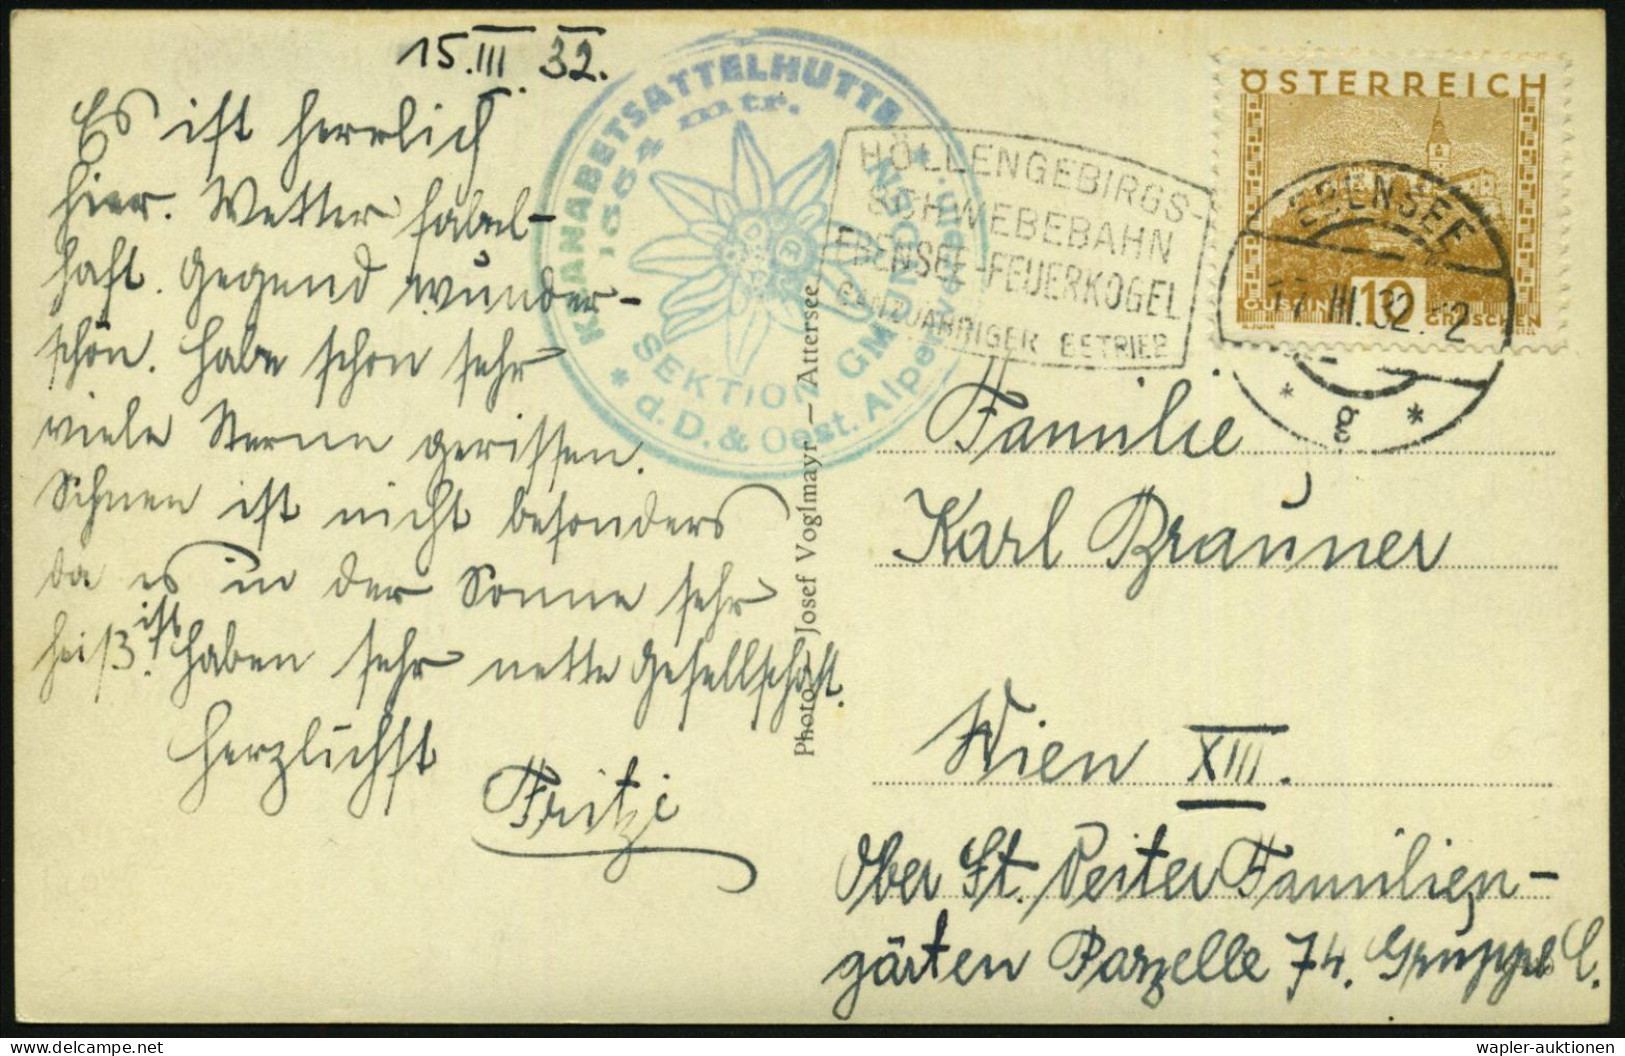 15.III.32.
Es ist herrlich
hier. Wetter fabel-
haft. Gegend wunder-
schön. Habe schon sehr
viele Sterne gerissen.
Schnee ist nicht besonders
da es in der Sonne sehr
heiß ist. Haben sehr nette Gesellschaft.
Herzlichst
Fritzi
KRANABETSATTELHÜTTE
mtr.
SEKTION GMUNDEN
* d. D. & Oest. Alpenvereins. *
Photo Josef Voglmayr – Attersee
HÖLLENGEBIRGS-
SCHWEBEBAHN
EBENSEE-FEUERKOGEL
GANZJÄHRIGER BETRIEB
ÖSTERREICH
GÜSSING 10 GROSCHEN
EBENSEE
17.III.32.12
* *
Familie
Karl Brauner
Wien XIII.
Ober St. Veiter Familien-
gärten Parzelle 74. Gruppe C.
wapler-auktionen